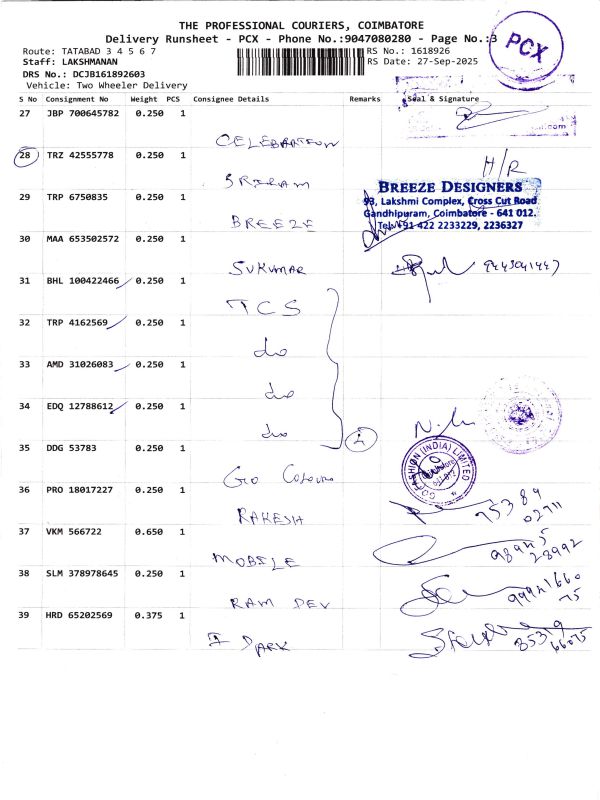 THE PROFESSIONAL COURIERS, COIMBATORE
Delivery Runsheet - PCX - Phone No.:9047080280 - Page No.:3
PCX
Route: TATABAD 3 4 5 6 7
RS No.: 1618926
Staff: LAKSHMANAN
RS Date: 27-Sep-2025
DRS No.: DCJB161892603
Vehicle: Two Wheeler Delivery
S No Consignment No Weight PCS Consignee Details Remarks Seal & Signature
27 JBP 700645782 0.250 1
CELEBRATION
28 TRZ 42555778 0.250 1
H/R
SRIRAM
BREEZE DESIGNERS
93, Lakshmi Complex, Cross Cut Road
Gandhipuram, Coimbatore - 641 012.
Tel: +91 422 2233229, 2236327
29 TRP 6750835 0.250 1
BREEZE
30 MAA 653502572 0.250 1
SUKUMAR
31 BHL 100422466 0.250 1
TCS
32 TRP 4162569 0.250 1
do
33 AMD 31026083 0.250 1
do
34 EDQ 12788612 0.250 1
do
35 DDG 53783 0.250 1
GO FASHION (INDIA) LIMITED
Go Colours
36 PRO 18017227 0.250 1
75389
02711
RAKESH
37 VKM 566722 0.650 1
28992
MOBILE
38 SLM 378978645 0.250 1
RAM DEV
39 HRD 65202569 0.375 1
85319
66075
PARK